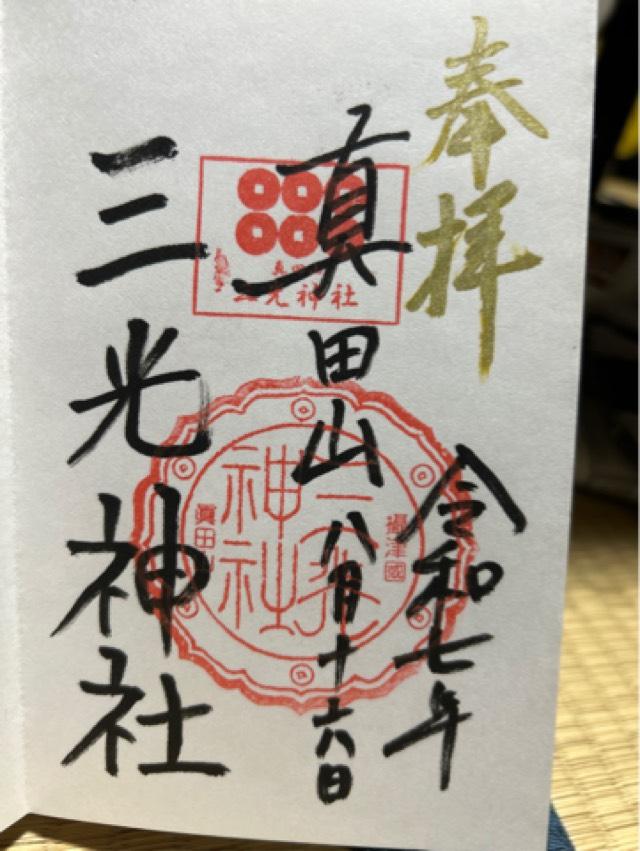 奉拝
令和七年
真田山
八月十六日
三光神社
三光神社
摂津國
三光神社